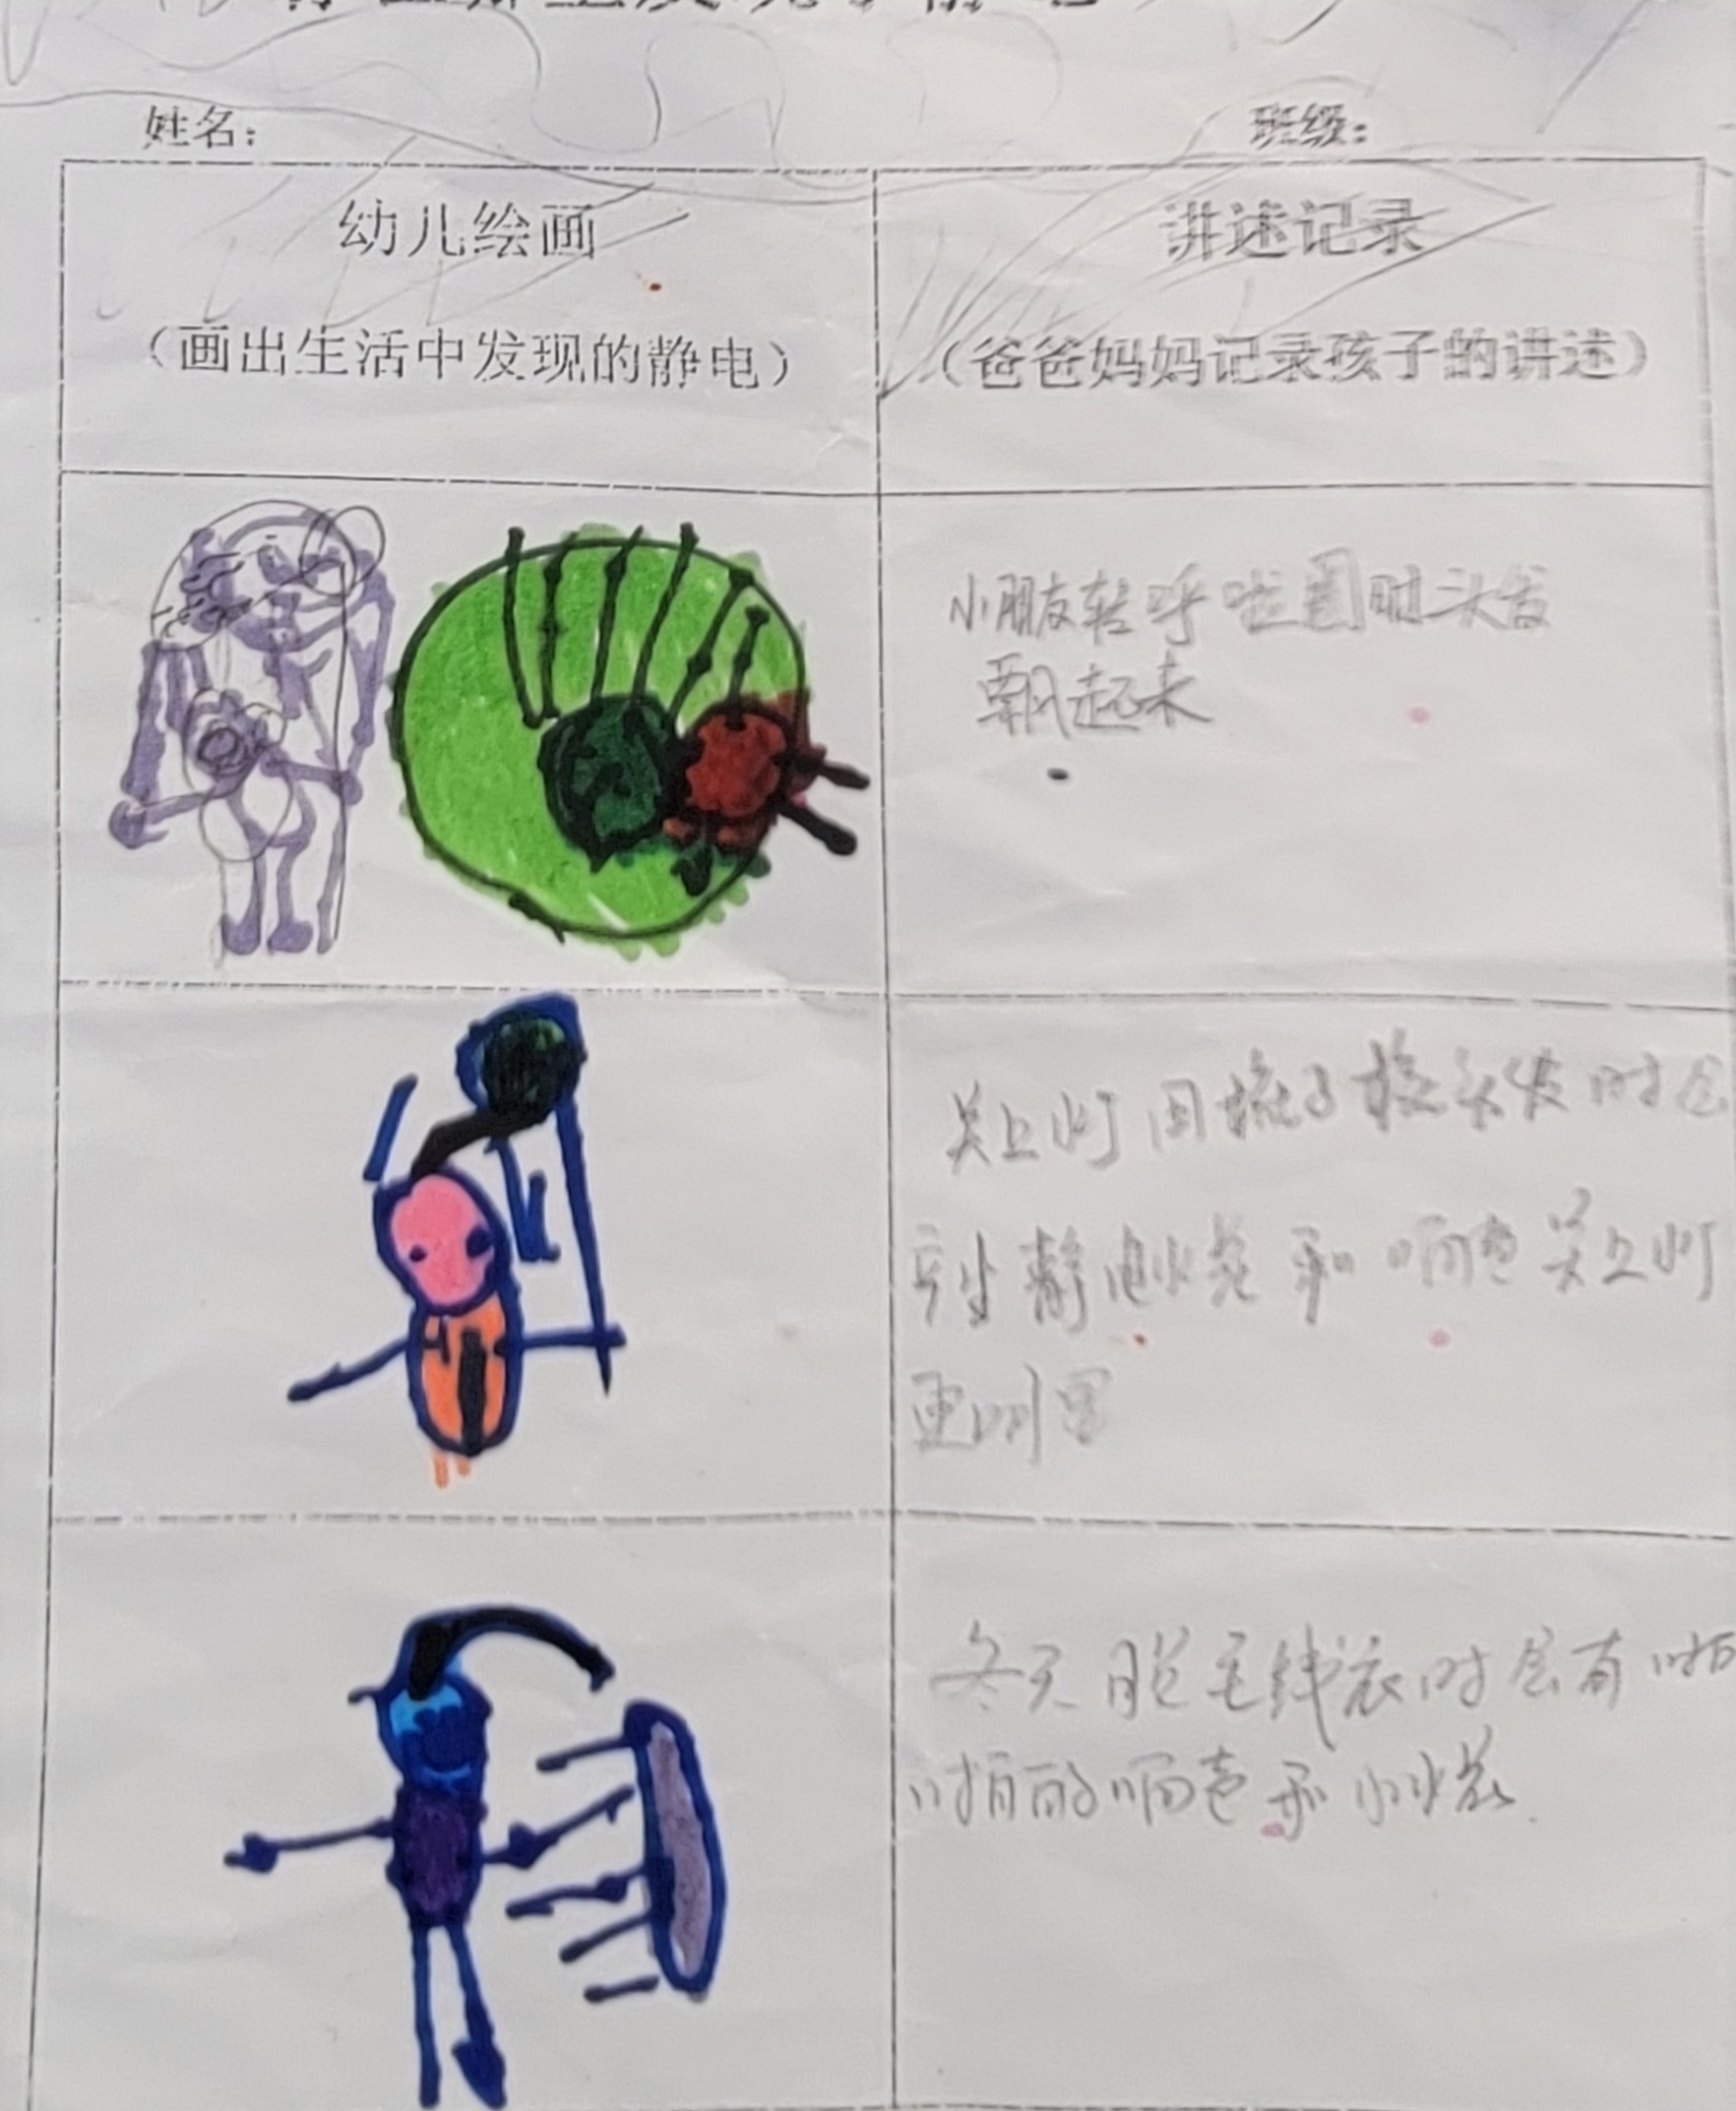 姓名：
班级：
幼儿绘画
讲述记录
（画出生活中发现的静电）
（爸爸妈妈记录孩子的讲述）
小朋友转呼啦圈时头发
飘起来
关上灯用梳子梳头发时会
产生静电火花和响声关上灯
更明显
冬天脱毛线衣时会有啪
啪的响声和小火花.